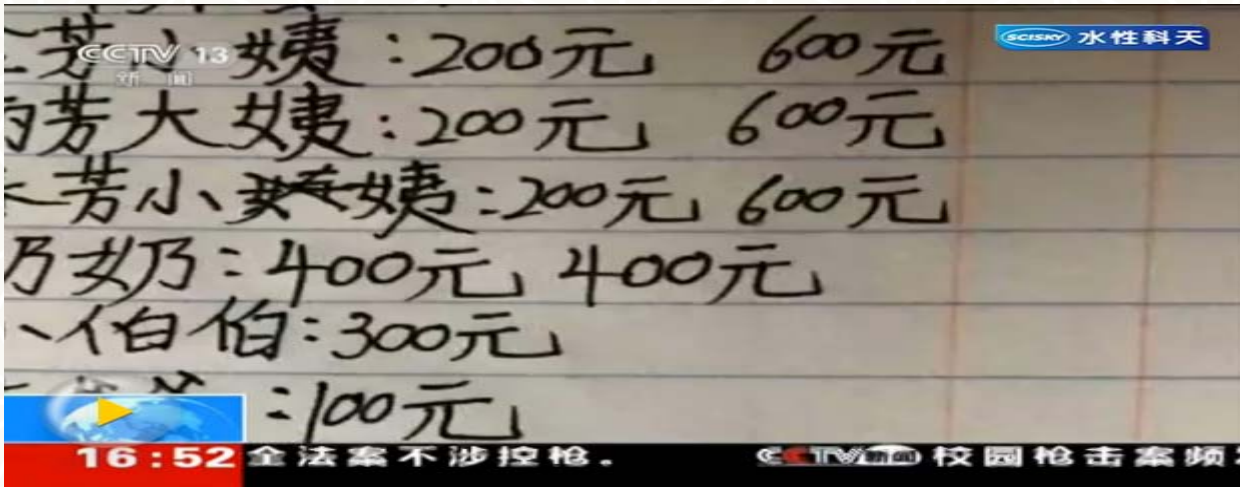 CCTV 13
新 闻
SCISKY 水性科天
芳小姨:200元 600元
芳大姨:200元 600元
芳小姨:200元 600元
奶奶:400元 400元
小伯伯:300元
:100元
16:52 全法案不涉控枪。 CCTV新闻 校园枪击案频